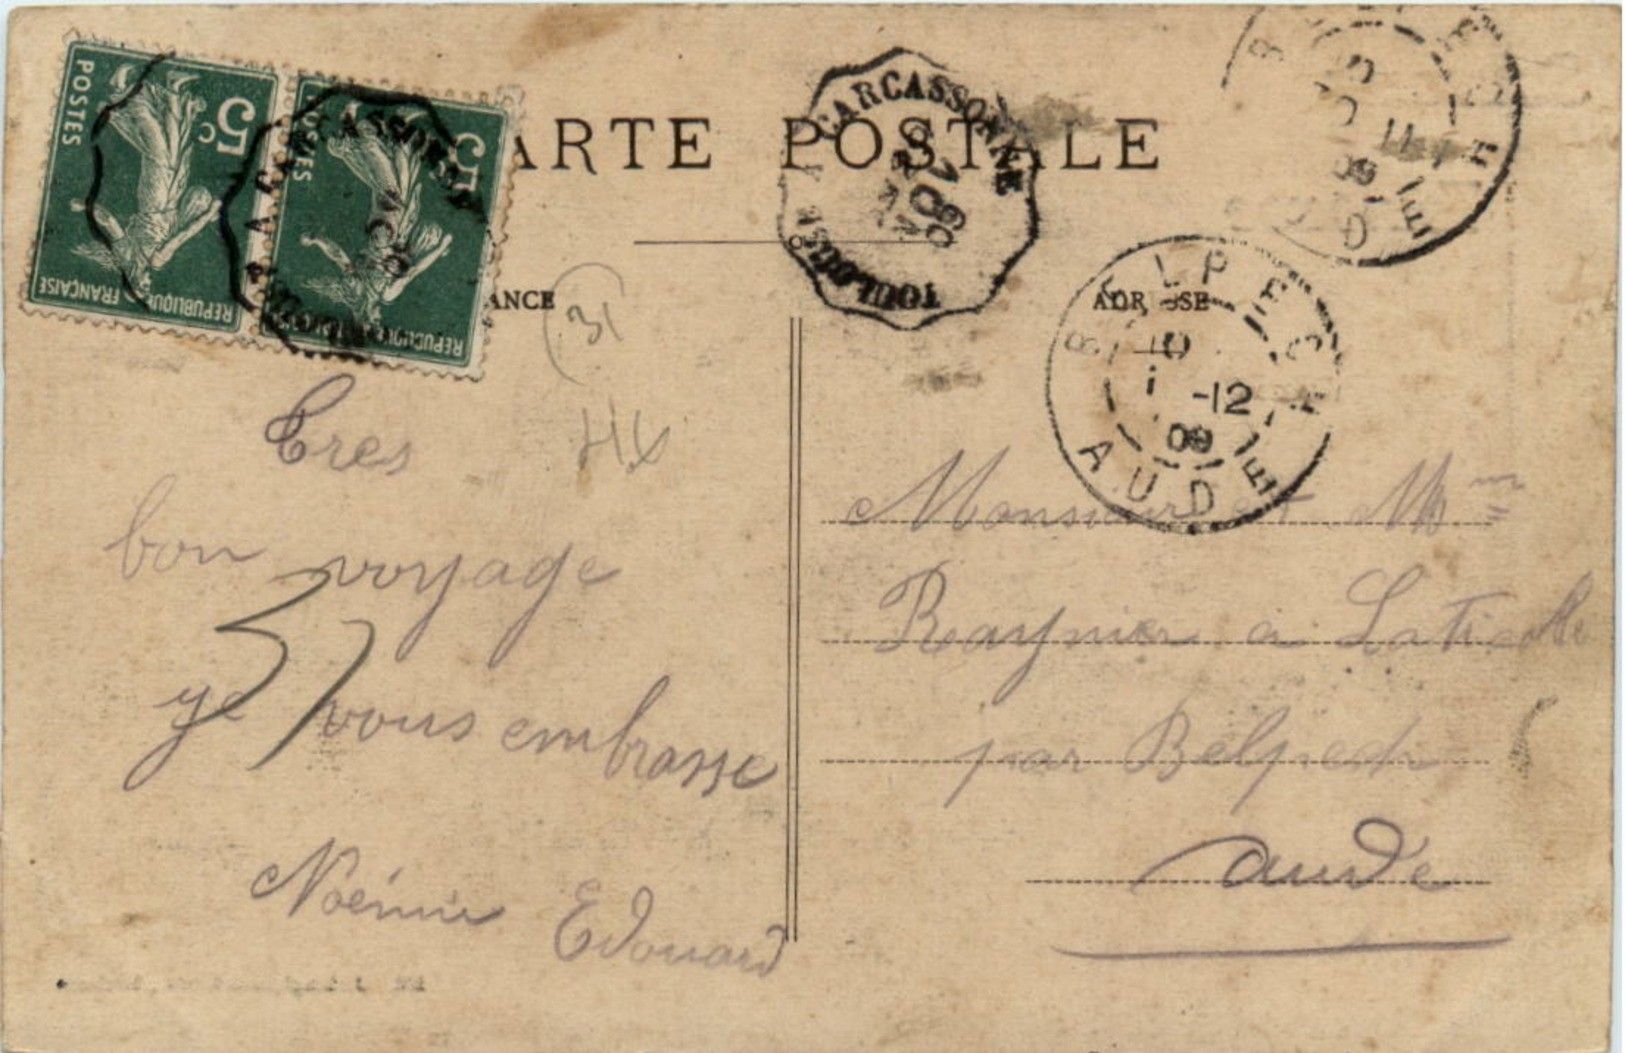 POSTES
5c
REPUBLIQUE FRANÇAISE
POSTES
5
REPUBLIQUE
CARCASSONNE
ARTE POSTALE
CARCASSONNE
TOULOUSE A
ANCE
ADRESSE
31
BELPECH
10
1 -12
09
AUDE
11
09
Tres
bon voyage
37
je vous embrasse
Noémie Edouard
Monsieur et Mme
Raynier a
par Belpech
aude